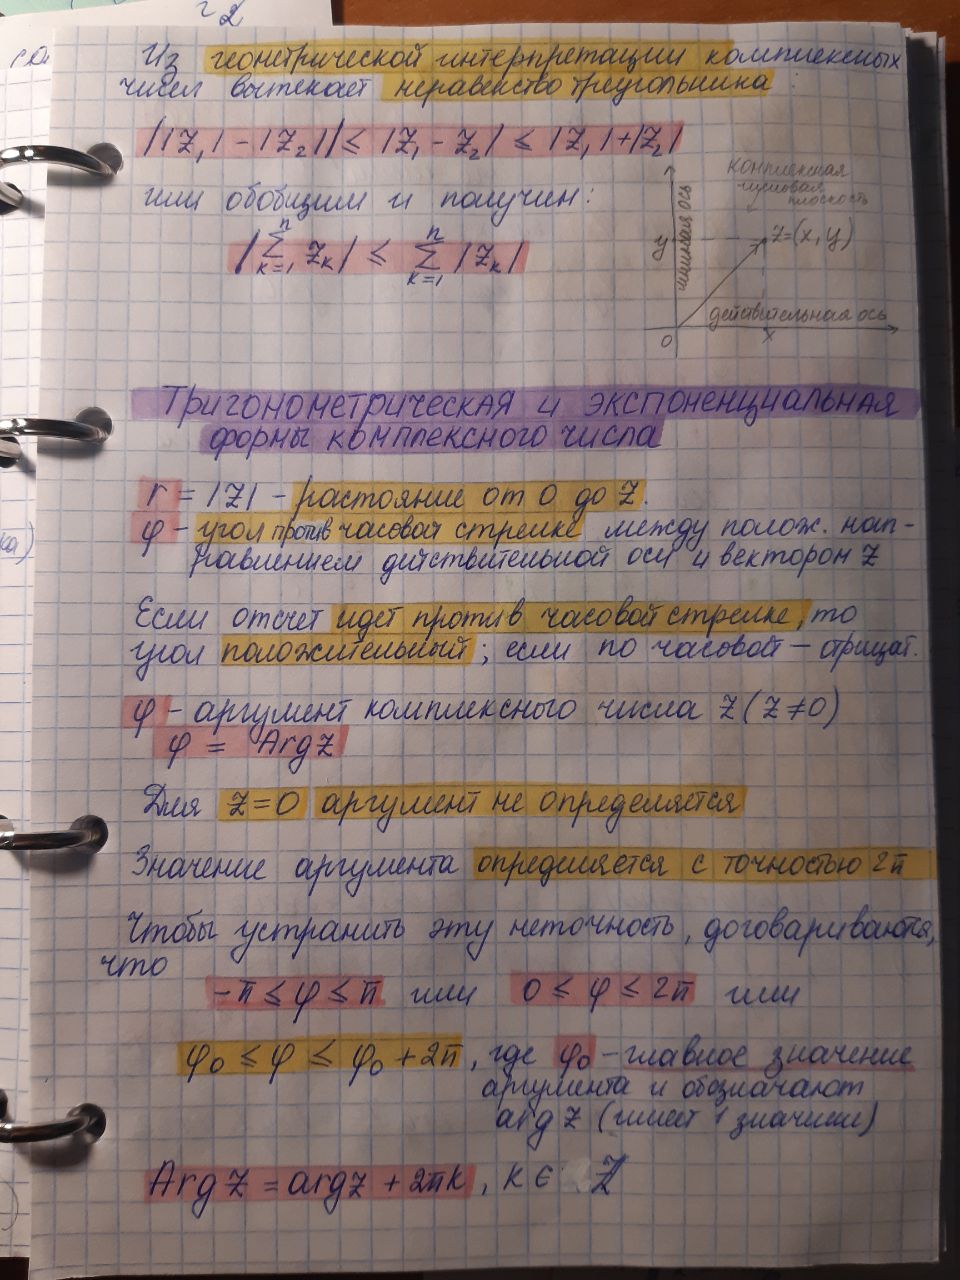 r2
Из геометрической интерпретации комплексных
чисел вытекает неравенство треугольника:
||z₁| - |z₂|| ≤ |z₁ - z₂| ≤ |z₁| + |z₂|
или обобщим и получим:
|∑ₖ₌₁ⁿ zₖ| ≤ ∑ₖ₌₁ⁿ |zₖ|
комплексная
числовая
плоскость
мнимая ось
y
z=(x, y)
действительная ось
0
x
Тригонометрическая и экспоненциальная
формы комплексного числа
r = |z| - растояние от 0 до z.
φ - угол против часовой стрелке между полож. нап-
равлением действительной оси и вектором z
Если отсчет идет против часовой стрелке, то
угол положительный; если по часовой - отрицат.
φ - аргумент комплексного числа z (z ≠ 0)
φ = Arg z
Для z = 0 аргумент не определяется
Значение аргумента определяется с точностью 2π
Чтобы устранить эту неточность, договариваются,
что
-π ≤ φ ≤ π или 0 ≤ φ ≤ 2π или
φ₀ ≤ φ ≤ φ₀ + 2π, где φ₀ - главное значение
аргумента и обозначают
arg z (имеет 1 значение)
Arg z = arg z + 2πk, k ∈ ℤ
ка)